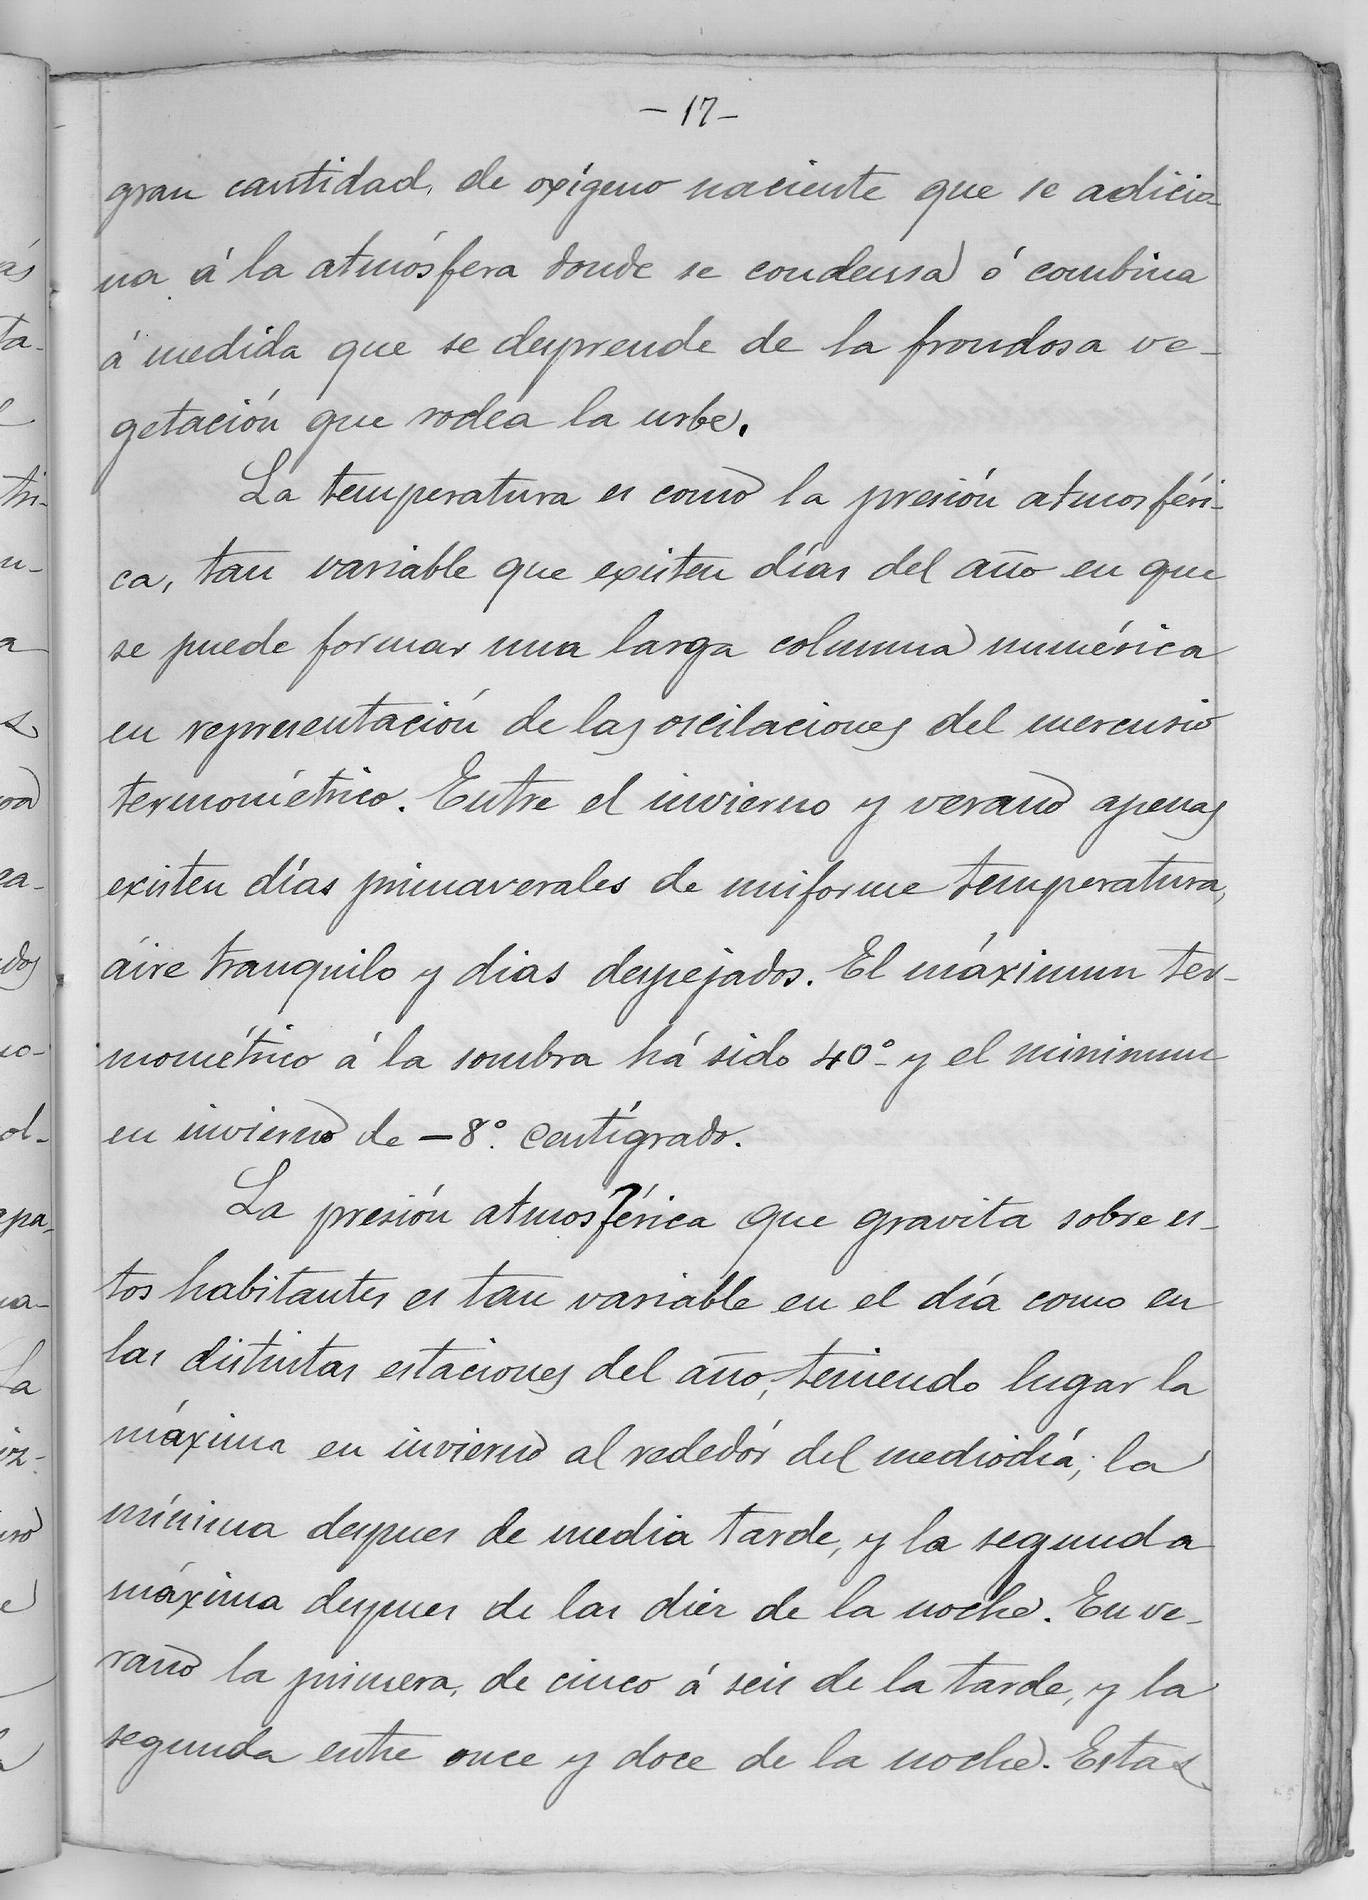 - 17 -
gran cantidad, de oxígeno naciente que se adicio-
na á la atmósfera donde se condensa ó combina
á medida que se desprende de la frondosa ve-
getación que rodea la urbe.
La temperatura es como la presión atmosféri-
ca, tan variable que existen días del año en que
se puede formar una larga columna numérica
en representación de las oscilaciones del mercurio
termométrico. Entre el invierno y verano apenas
existen días primaverales de uniforme temperatura,
áire tranquilo y dias despejados. El máximun ter-
mométrico á la sombra há sido 40º y el minimun
en invierno de -8º. Centígrado.
La presión atmosférica que gravita sobre es-
tos habitantes es tan variable en el día como en
las distintas estaciones del año, teniendo lugar la
máxima en invierno al rededór del mediodía; la
mínima despues de media tarde, y la segunda
máxima despues de las diez de la noche. En ve-
rano la primera, de cinco á seis de la tarde, y la
segunda entre once y doce de la noche. Estas